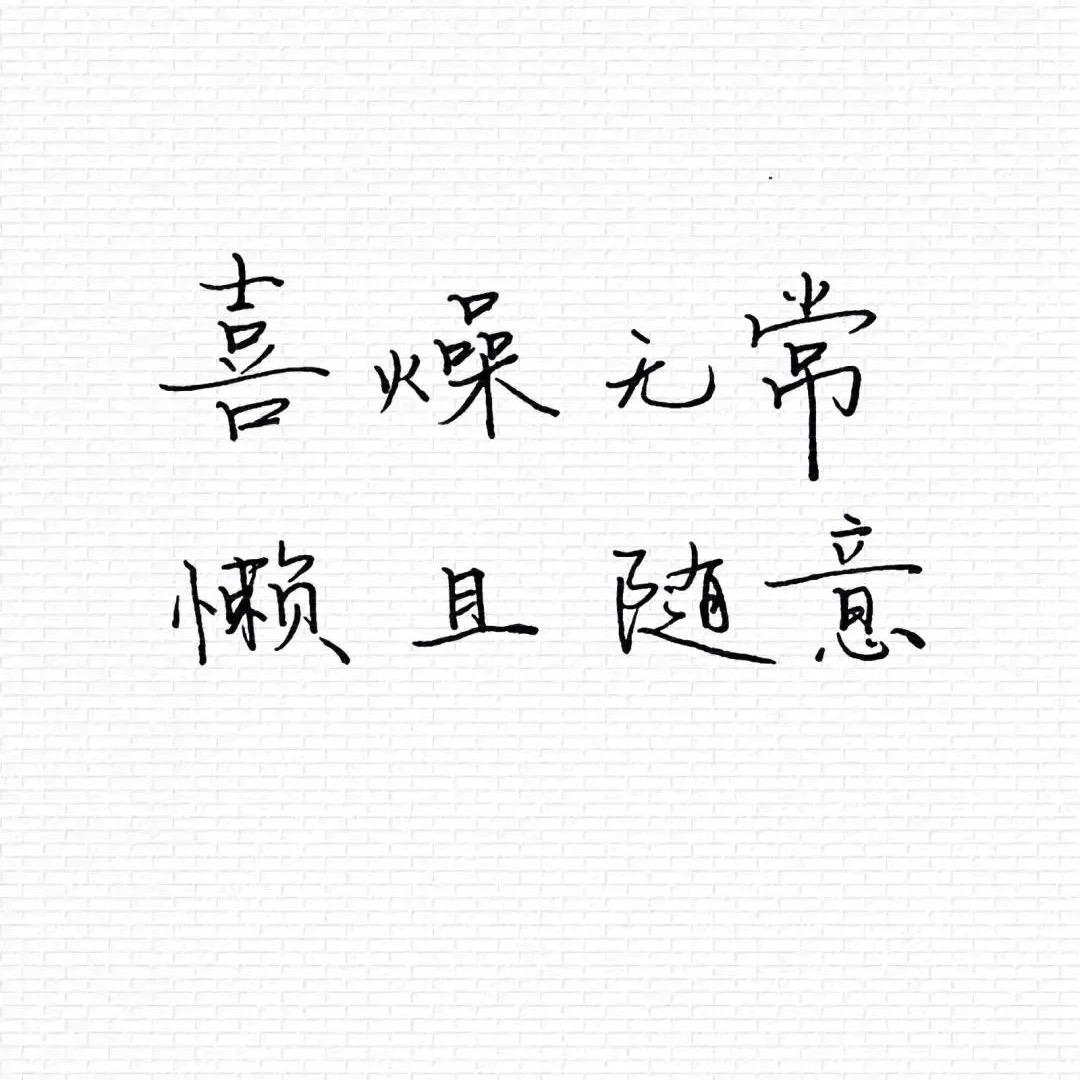 喜燥无常
懒且随意